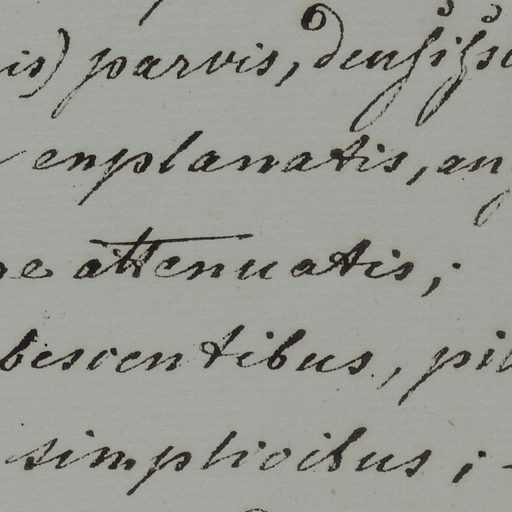 is) parvis, densiss
enplanatis, an
attenuatis;
bescentibus, pil
simplicibus;